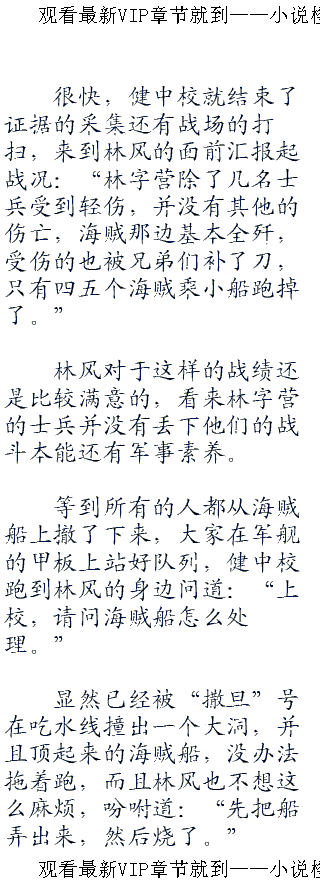 观看最新VIP章节就到——小说
很快，健中校就结束了
证据的采集还有战场的打
扫，来到林风的面前汇报起
战况：“林字营除了几名士
兵受到轻伤，并没有其他的
伤亡，海贼那边基本全歼，
受伤的也被兄弟们补了刀，
只有四五个海贼乘小船跑掉
了。”
林风对于这样的战绩还
是比较满意的，看来林字营
的士兵并没有丢下他们的战
斗本能还有军事素养。
等到所有的人都从海贼
船上撤了下来，大家在军舰
的甲板上站好队列，健中校
跑到林风的身边问道：“上
校，请问海贼船怎么处
理。”
显然已经被“撒旦”号
在吃水线撞出一个大洞，并
且顶起来的海贼船，没办法
拖着跑，而且林风也不想这
么麻烦，吩咐道：“先把船
弄出来，然后烧了。”
观看最新VIP章节就到——小说